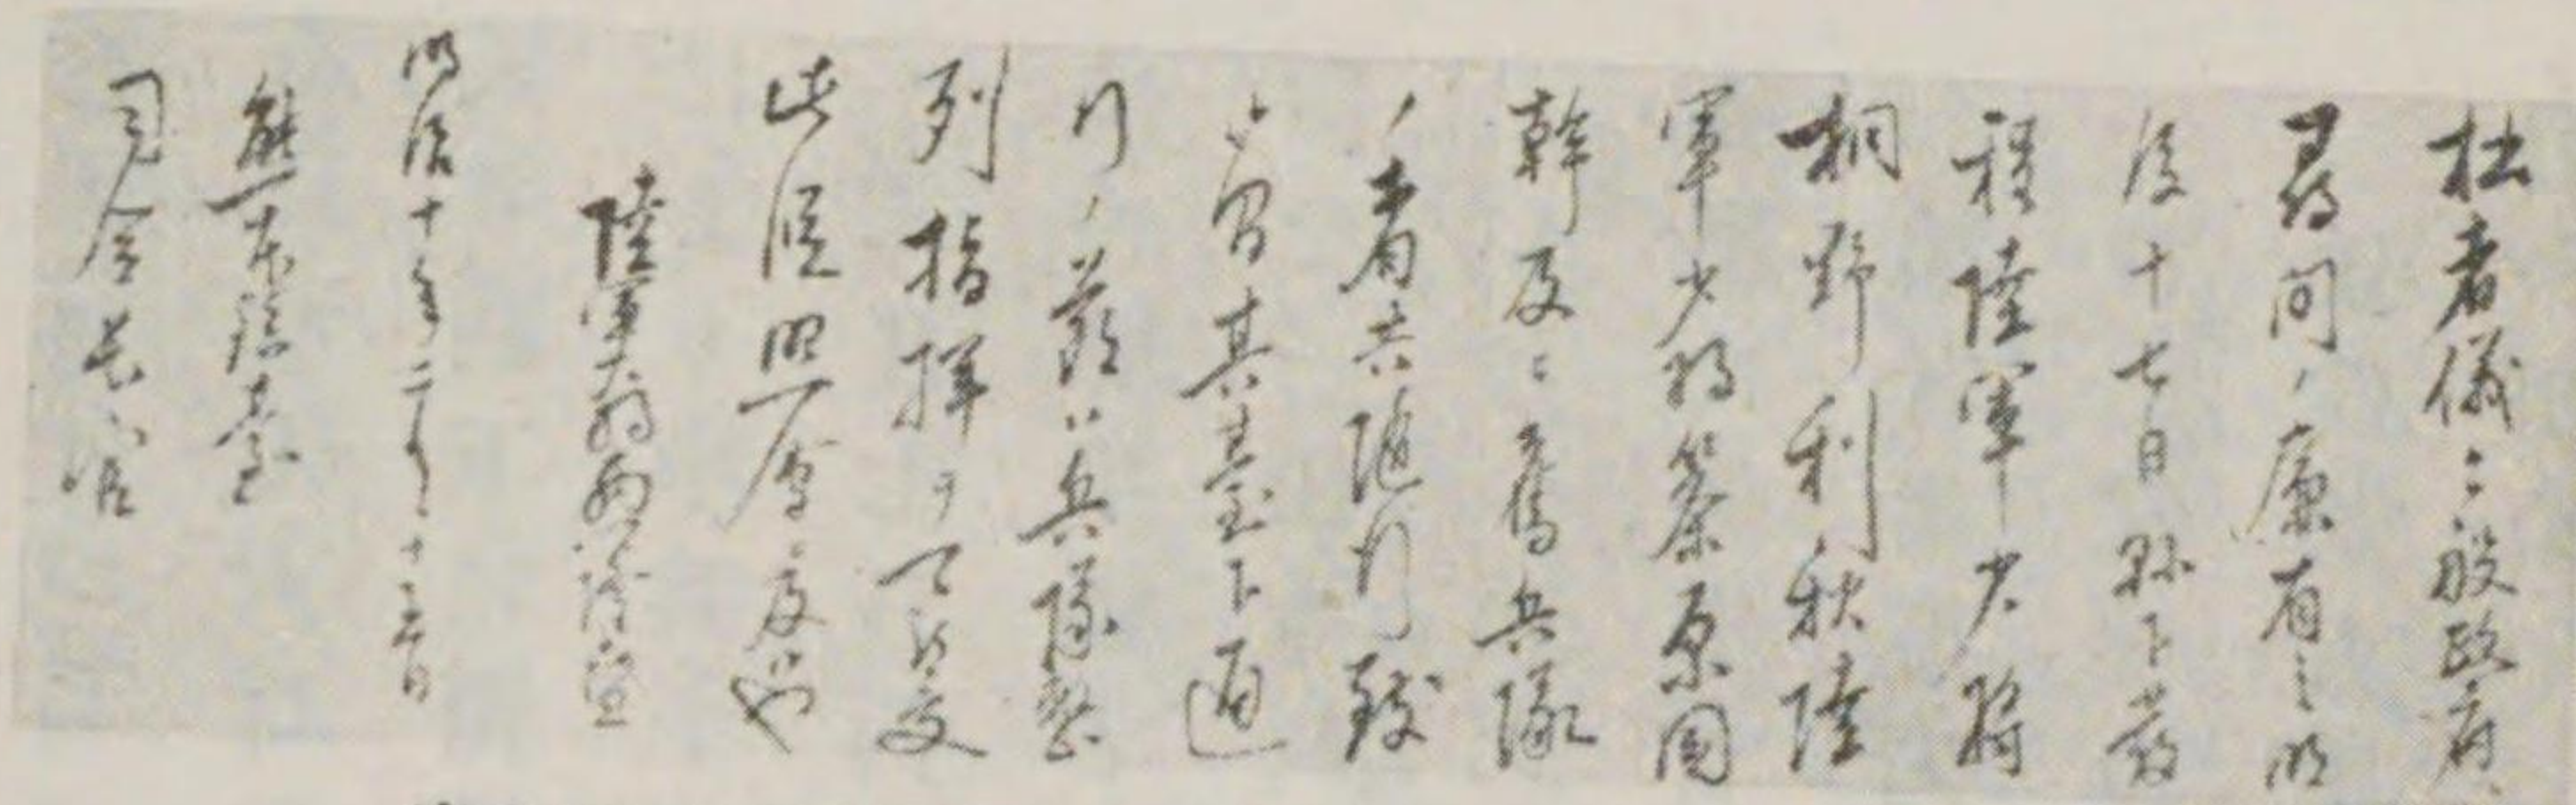 拙者儀今般政府ヘ
尋問ノ廉有之明
後十七日縣下發
程陸軍少将
桐野利秋陸
軍少将篠原國
幹及ヒ舊兵隊
ノ者共随行致
候間其臺下通
行ノ節ハ兵隊整
列指揮ヲ可被受
此段照會ニ及候也
陸軍大将西郷隆盛
明治十年二月十五日
熊本鎮臺
司令長官